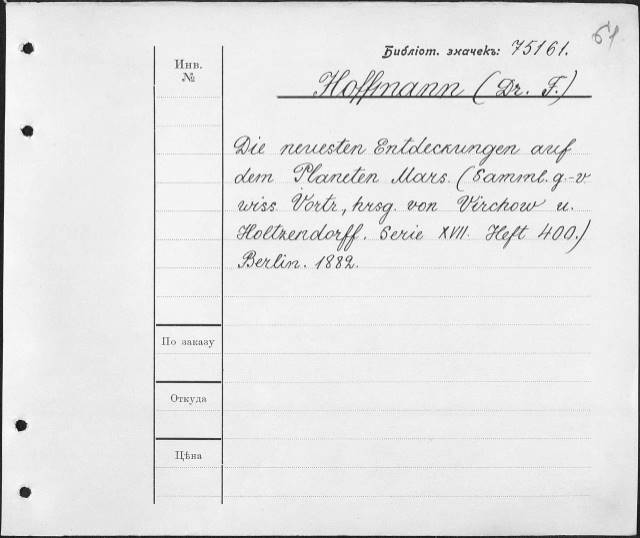 61
Библіот. значекъ: 75161.
Инв.
№
Hoffmann (Dr. F.)
Die neuesten Entdeckungen auf
dem Planeten Mars. (Samml. g.-v
wiss Vortr., hrsg. von Virchow u.
Holtzendorff. Serie XVII. Heft 400.)
Berlin. 1882.
По заказу
Откуда
Цѣна